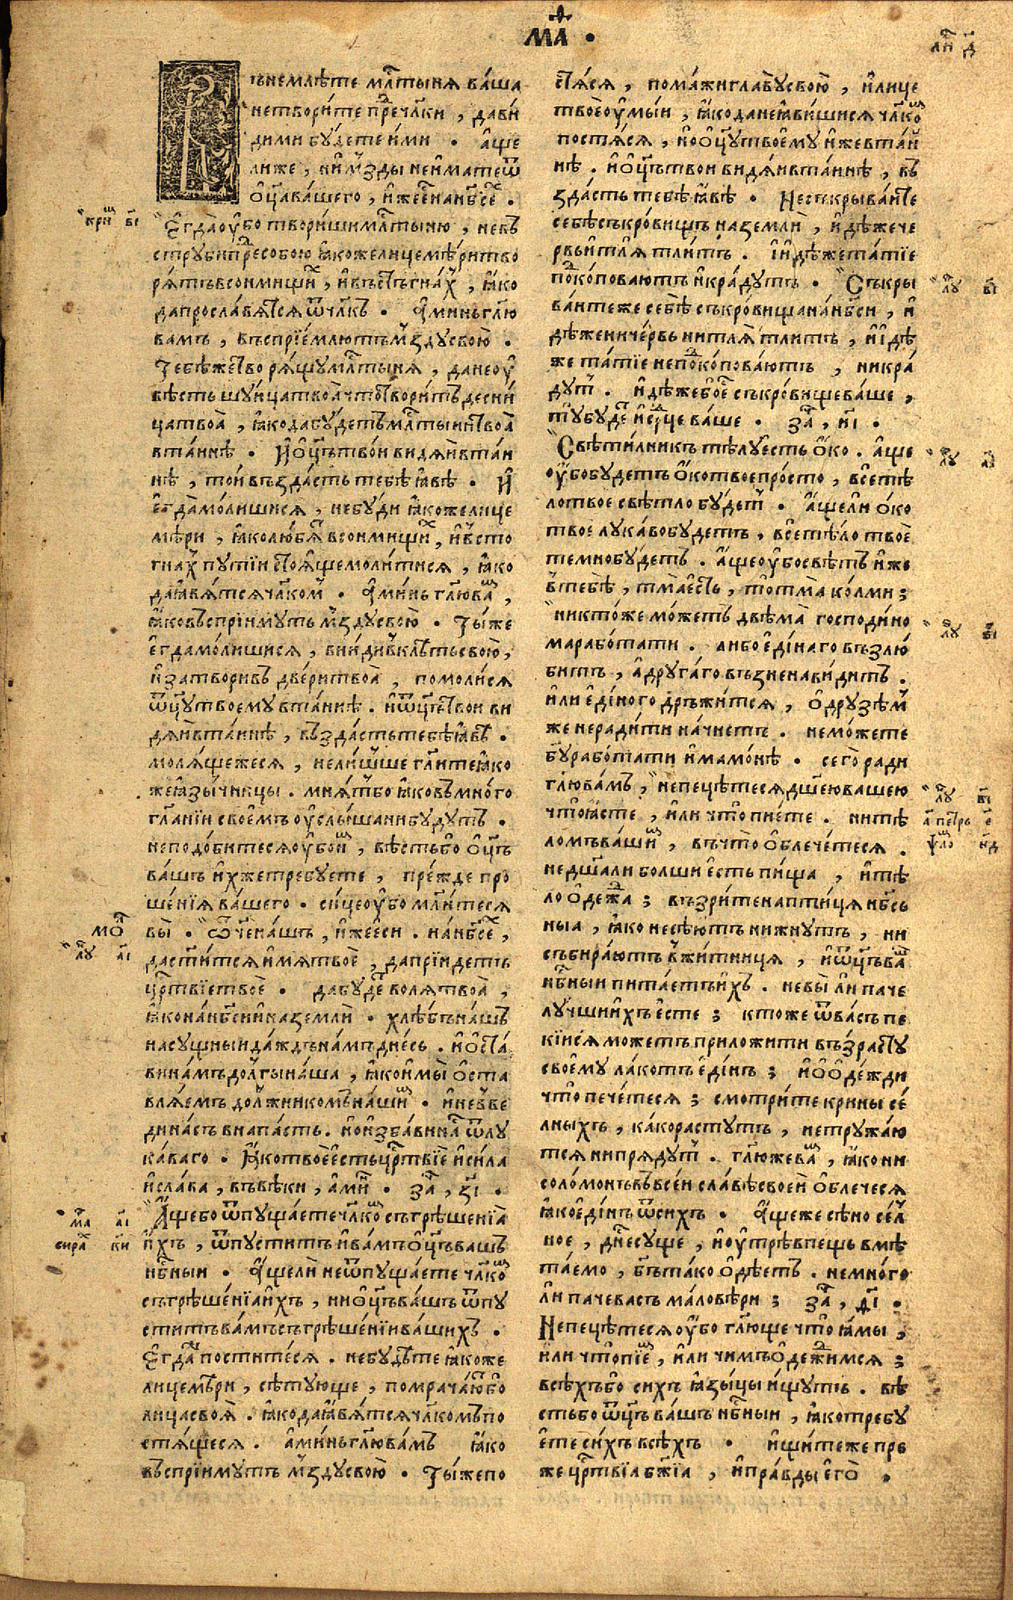 МА҃ .
ъ немлѣте мл҃тыня ва́ша
нетвори́те пре чл҃ки , дави́
дими бу́детеи́ми . а́ще
лиже , ни мзды неи́матеѿ
о҆ц҃ава́шего , и҆же е҆ н҃анб҃се .
Е҆гда̀ оу҆бо твори́ши мл҃тыню , невъ
струби́ пресобою ꙗ҆коже лицемѣ́ри тво
ря́тъ всонмищи , и҆въ сте́гнах , ꙗ҆ко
да просла́вятся ѿчл҃къ . А҆минь гл҃ю
вамъ , въспрїе́млютъ мздусвою .
Тебѣ́же творя́щу мл҃тыня , данеоу҆
вѣсть шуи́ца твоа̀ что́ твори́тъ десни́
цатвоа̀ , ꙗ҆кода бу́детъ мл҃тыни твоа̀
вта́инѣ . И҆ о҆ц҃ъ тво́и видя́и вта́и
нѣ , то́и въ зда́сть тебѣ̀ ꙗ҆вѣ . И҆
е҆гда̀ мо́лишися , небу́ди ꙗ҆коже лице
мѣ́ри , ꙗ҆ко лю́бя всонмищи , и҆въ сто
гнах пути́и стоя́ще моли́тися , ꙗ҆ко
да ꙗ҆вя́тся чл҃ком . А҆минь гл҃ю ва ,
ꙗ҆ковъспрїи́мутъ мздусвою . Ты́же
е҆гда мо́лишися , вни́ди въ клѣ́ть свою ,
и҆затвори́въ две́ри твоа̀ , помоли́ся
ѿц҃у твоему̀ вта́инѣ . и҆ѿц҃ъ твои ви
дя́и вта́инѣ , въ зда́стъ тебѣ̀ ꙗ҆вѣ .
моля́щежеся , нели́шше гл҃ите ꙗ҆ко
же ꙗ҆зы́чницы . мня́т бо ꙗ҆ковъ мно́го
гл҃анїи свое́мъ оу҆слы́шани бу́дутъ .
неподо́битеся оу҆бои , вѣ́сть бо о҆ц҃ъ
ва́шъ и҆хже тре́буете , пре́жде про
ше́нїя ва́шего . си́це оу҆бо мли́теся
вы̀ . ѿче на́шъ , и҆же е҆си . нанб҃се ,
да ст҃и́тся и҆мя твоѐ , да прїи́детъ
црⷭтвїе твоѐ . да бу́де воля твоа̀ ,
ꙗ҆ко нанб҃си и҆наземлѝ . хлѣ́бъ на́шъ
насу́щныи да́ждъ на́мъ дне́сь . и҆о҆ста́
ви на́мъ до́лгы на́ша , ꙗ҆ко и҆мы̀ о҆ста
вля́емъ должнико́мъ на́ши . и҆ невъве
ди на́съ внапа́сть . но и҆зба́ви на ѿ лу
ка́ваго . ꙗ҆ко твоѐ е҆сть црⷭтвїе и҆си́ла
и҆сла́ва , въвѣки , а҆ми́н . за҃ , з҃і .
А҆ще бо ѿпуща́ете чл҃ко съгрѣше́нїа
и҆хъ , ѿпу́ститъ и҆ва́мъ о҆ц҃ъ ва́шъ
нб҃ныи . А҆щели неѿпуща́ете чл҃ко
съгрѣше́нїаи҆хъ , ни о҆ц҃ъ ва́шъ ѿпу
ститъ ва́мъ съгрѣше́нїи ва́шихъ .
Е҆гда̀ постите́ся . небу́дѣте ꙗ҆коже
лицемѣ́ри , сѣ́тующе , помрача́ютбо
лица своя̀ . ꙗ҆кода ꙗ҆вя́тся чл҃комъ по
стя́щеся . а҆минь гл҃ю ва́мъ ꙗ҆ко
въспрїи́мутъ мздусвою . Ты́же по
стя́ся , пома́жи главу̀ свою , и҆лице
твоѐ оу҆мы́и , ꙗ҆ко да не ꙗ҆ви́шися чл҃ко
постя́ся , но о҆ц҃у твоему̀ и҆же вта́и
нѣ . и҆о҆ц҃ътвои видя́и вта́инѣ , въ
зда́сть тебѣ̀ ꙗ҆вѣ . Несъкрыва́ите
себѣ̀ съкро́вищъ наземлѝ , и҆дѣже че
рвь и҆тля̀ тли́тъ . и҆ и҆дѣже та́тїе
поко́поваютъ и҆кра́дутъ . Съкры
ва́ите же себѣ̀ съкро́вища нанб҃си , и҆
дѣже ниче́рвь нитля̀ тли́тъ , и҆ и҆дѣ
же та́тїе непоко́поваютъ , никра́
дут . и҆дѣже бо е҆ съкро́вище ва́ше ,
ту̀ бу́де и҆ср҃це ва́ше . за҃ , и҃і .
Свѣти́лникъ тѣ́лу е҆сть о҆ко . а҆ще
оу҆бо бу́детъ о҆ко твое про́сто , все тѣ́
ло твое свѣ́тло бу́дет . а҆щели о҆ко
твое лука́во бу́детъ , все тѣ́ло твоѐ
те́мно бу́детъ . а҆ще оу҆бо свѣ́тъ и҆же
в тебѣ̀ , тма̀ е҆сть , то̀ тма̀ ко́лми ;
никто́же мо́жетъ двѣма̀ господи́но
ма рабо́тати . а҆либо е҆ди́наго възлю́
битъ , а҆ друга́го възненави́дитъ .
и҆ли е҆ди́ного дръжи́тся , о҆ дру́зѣм
же неради́ти на́чнетъ . немо́жете
б҃у рабо́тати и҆мамо́нѣ . сего̀ ради
гл҃ю ва́мъ , непецѣ́теся дш҃ею ва́шею
что̀ ꙗ҆сте , и҆ли что̀ пїе́те . ни тѣ́
ломъ ва́ши , въ что̀ о҆блече́теся .
недш҃а ли бо́лши е҆сть пи́ща , и҆ тѣ́
ло о҆де́жа ; възри́те на пти́ця нб҃сь
ныа , ꙗ҆ко несѣ́ютъ ни жну́тъ , ни
събира́ютъ в жи́тниця , и҆ѿц҃ъ ва
нб҃ныи пита́етъ и҆хъ . невы̀ ли па́че
лу́чши и҆хъ е҆сте ; кто же ѿва́съ пе
кїи́ся мо́жетъ приложи́ти възра́сту
своему̀ ла́котъ е҆ди́нъ ; и҆ о҆ о҆де́жди
что̀ пече́теся ; смотри́те кри́ны се́
лныхъ , ка́ко расту́тъ , нетружа́ю
тся ни пряду́т . гл҃юже ва , ꙗ҆ко ни
соломо́нъ въ все́и сла́вѣ свое́и о҆блече́ся
ꙗ҆ко е҆ди́нъ ѿси́хъ . А҆щеже сѣ́но се́л
ное , дне́ сущѐ , и҆ оу҆трѣ въ пещь вмѣ́
та́емо , б҃ъ та́ко о҆дѣ́етъ . немно́го
ли па́че васъ маловѣ́ри ; за҃ , д҃і .
Непецѣ́теся оу҆бо гл҃юще что̀ ꙗ҆мы ,
и҆ли что̀ пїе , и҆ли чимъ о҆де́жимся ;
всѣ́хъ бо си́хъ ꙗ҆зы́цы и҆щутъ . вѣ́
сть бо ѿц҃ъ ва́шъ нб҃ныи , ꙗ҆ко требу
е҆те си́хъ всѣ́хъ . и҆щи́те же пре
же црⷭтвїа б҃жїа , и҆пра́вды е҆го̀ ,